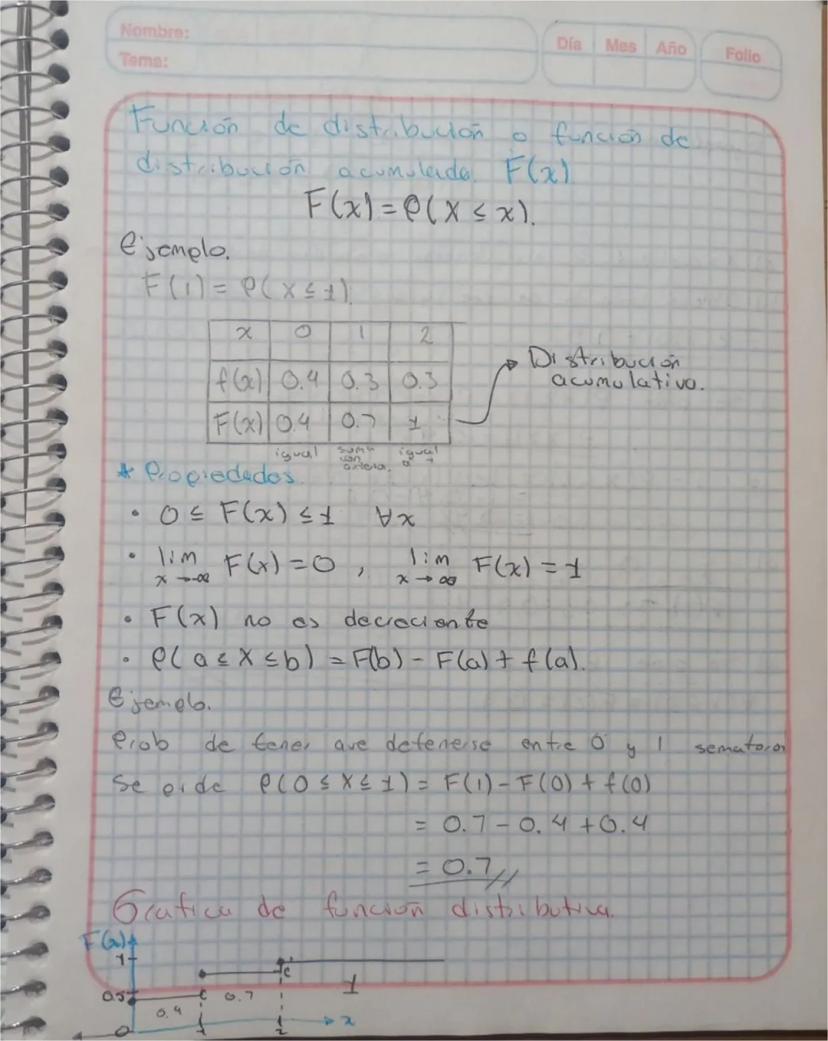 Nombre:
Tema:
Día Mes Año
Folio
Función de distribución o función de
distribución acumulada. F(x)
F(x) = P(X ≤ x).
Ejemplo.
F(1) = P(X ≤ 1)
x 0 1 2
f(x) 0.4 0.3 0.3
F(x) 0.4 0.7 1
Distribución
acumulativa.
igual suma con igual a 1
* Propiedades.
• 0 ≤ F(x) ≤ 1 ∀x
• lim x→-∞ F(x) = 0 , lim x→∞ F(x) = 1
• F(x) no es decreciente
• P(a ≤ X ≤ b) = F(b) - F(a) + f(a).
Ejemplo.
Prob de tener que detenerse entre 0 y 1 sematoros
Se pide P(0 ≤ X ≤ 1) = F(1) - F(0) + f(0)
= 0.7 - 0.4 + 0.4
= 0.7//
Grafica de función distributiva.
F(x)
1
0.5
0.4 0.7 1
0 1 2 x